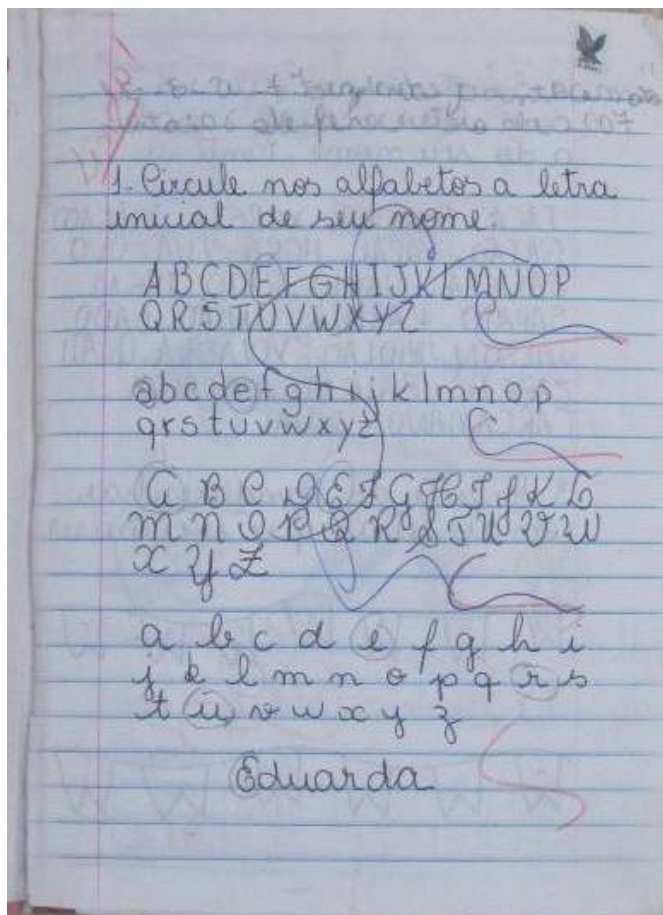 1. Circule nos alfabetos a letra
inicial de seu nome:
A B C D E F G H I J K L M N O P
Q R S T U V W X Y Z
a b c d e f g h i j k l m n o p
q r s t u v w x y z
A B C D E F G H I J K L
M N O P Q R S T U V W
X Y Z
a b c d e f g h i
j k l m n o p q r s
t u v w x y z
Eduarda